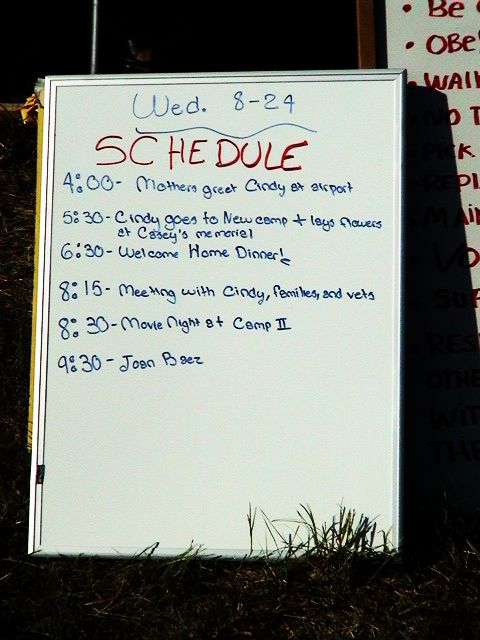 Wed. 8-24
SCHEDULE
4:00- Mothers greet Cindy at airport
5:30- Cindy goes to New camp + lays flowers
at Casey's memorial
6:30- Welcome Home Dinner!
8:15- Meeting with Cindy, families, and vets
8:30- Movie Night at Camp II
9:30- Joan Baez
• Be
• OBE
• WAI
NO T
PICK
REPL
MAIN
VO
SUP
RES
OTHE
WIT
THE